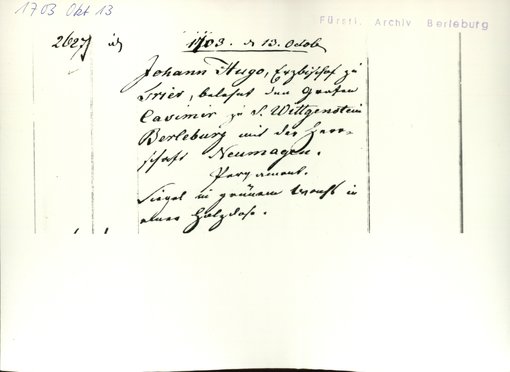 1703 Okt 13
Fürstl. Archiv Berleburg
2627 id 1703. d 13. Octob
Johann Hugo, Erzbischof zu
Trier, belehnt den Grafen
Casimir zu S. Wittgenstein
Berleburg mit der Herr-
schaft Neumagen.
Pergament.
Siegel in grünem Wachs in
einer Holzdose.